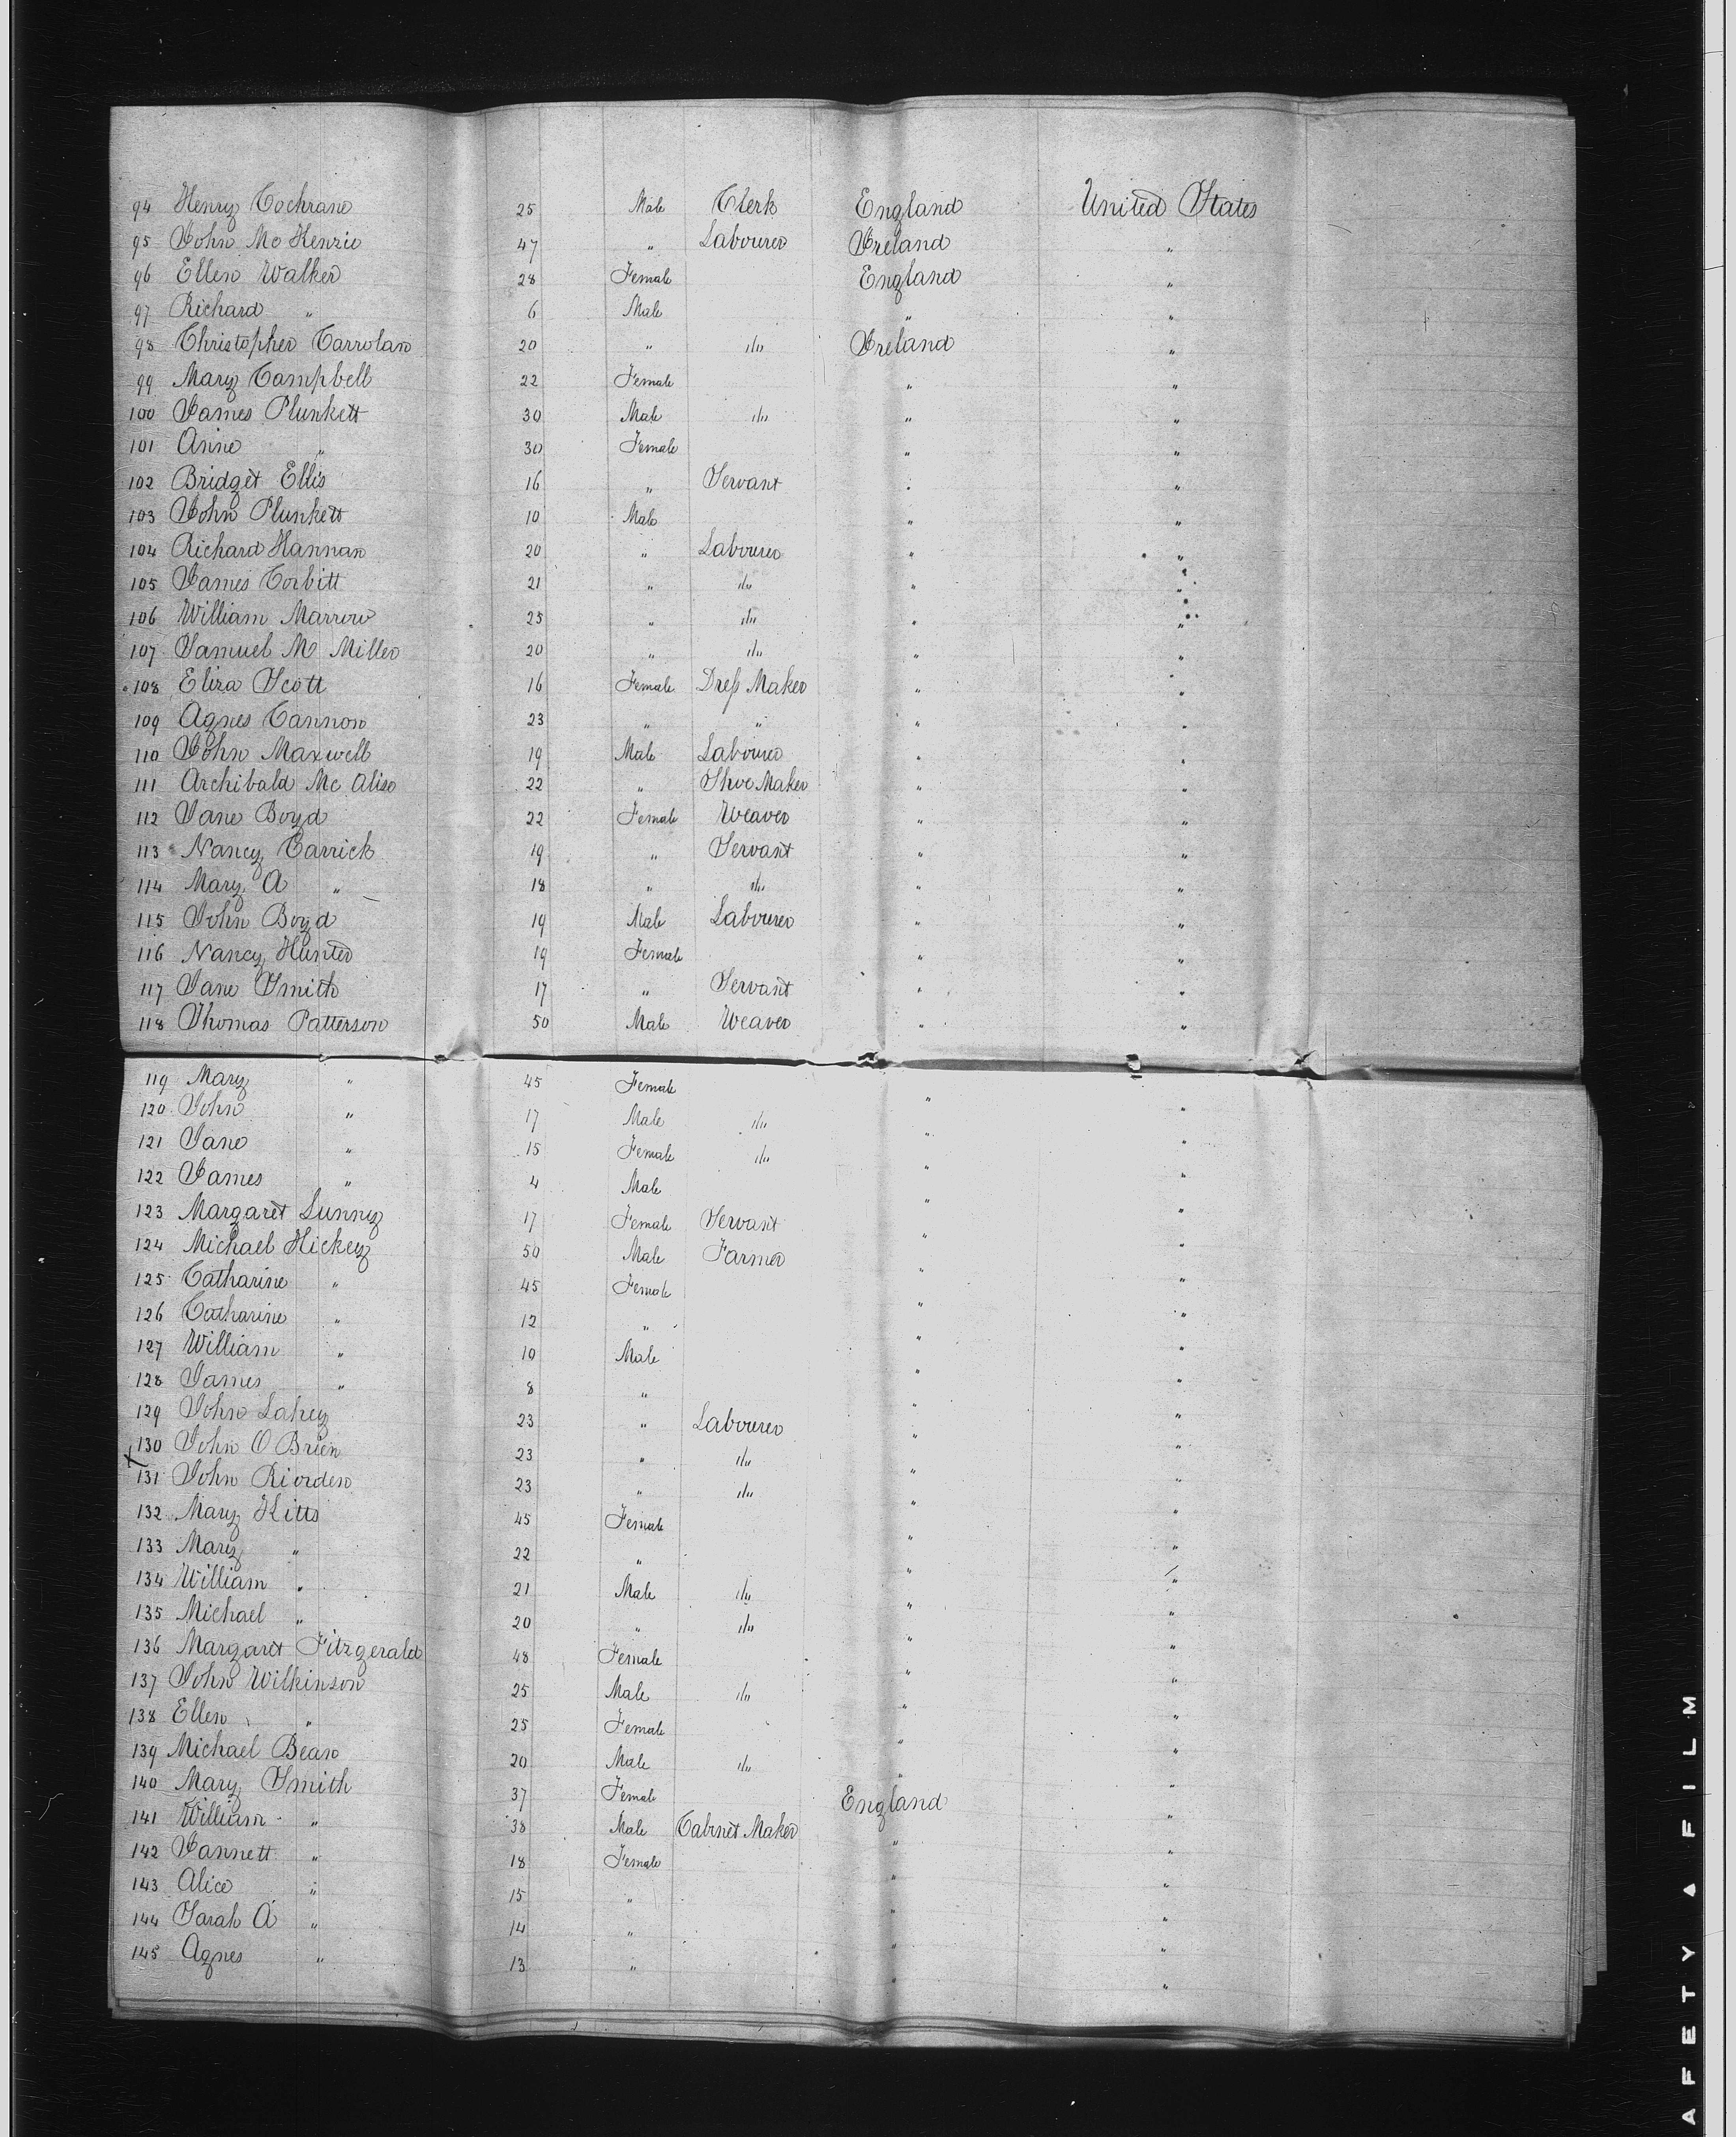 94 Henry Cochrane 25 Male Clerk England United States
95 John Mc Kenzie 47 " Labourer Ireland "
96 Ellen Walker 28 Female England "
97 Richard " 6 Male " "
98 Christopher Carrolan 20 " " Ireland "
99 Mary Campbell 22 Female " "
100 James Plunkett 30 Male " " "
101 Anne " 30 Female " "
102 Bridget Ellis 16 " Servant " "
103 John Plunkett 10 Male " "
104 Richard Hannan 20 " Labourer " "
105 James Corbitt 21 " " " "
106 William Marrow 25 " " " "
107 Samuel M Miller 20 " " " "
108 Eliza Scott 16 Female Dress Maker " "
109 Agnes Cannon 23 " " " "
110 John Maxwell 19 Male Labourer " "
111 Archibald Mc 22 " Shoe Maker " "
112 Jane Boyd 22 Female Weaver " "
113 Nancy Carrick 19 " Servant " "
114 Mary A " 18 " " " "
115 John Boyd 19 Male Labourer " "
116 Nancy Hunter 19 Female " "
117 Jane Smith 17 " Servant " "
118 Thomas Patterson 50 Male Weaver " "
119 Mary " 45 Female " "
120 John " 17 Male " " "
121 Jane " 15 Female " " "
122 James " 4 Male " "
123 Margaret Lunny 17 Female Servant " "
124 Michael Hickey 50 Male Farmer " "
125 Catharine " 45 Female " "
126 Catharine " 12 " " "
127 William " 10 Male " "
128 James " 8 " " "
129 John Lahey 23 " Labourer " "
130 John O Brien 23 " " " "
131 John Riorden 23 " " " "
132 Mary Kitts 45 Female " "
133 Mary " 22 " " "
134 William " 21 Male " " "
135 Michael " 20 " " " "
136 Margaret Fitzgerald 48 Female " "
137 John Wilkinson 25 Male " " "
138 Ellen " 25 Female " "
139 Michael Bean 20 Male " " "
140 Mary Smith 37 Female England "
141 William " 38 Male Cabinet Maker " "
142 Jannett " 18 Female " "
143 Alice " 15 " " "
144 Sarah A " 14 " " "
145 Agnes " 13 " " "
AFETY FILM